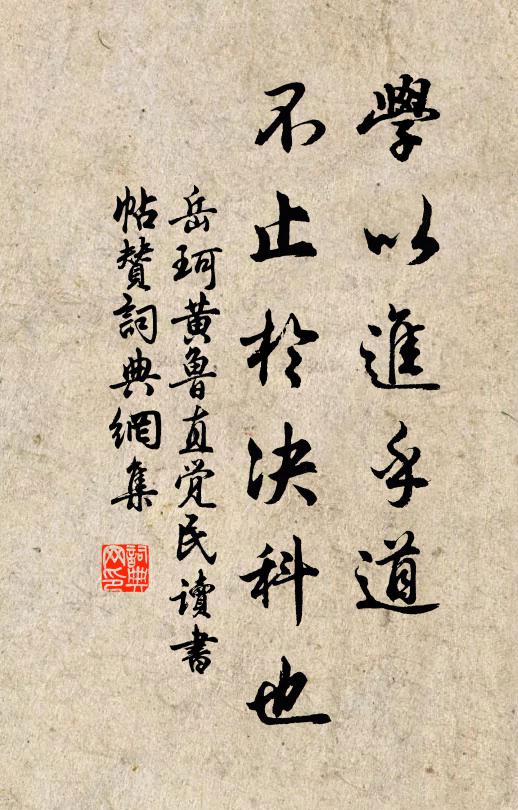 學以進乎道
不止於决科也
岳珂黄魯直觉民讀書
帖赞詞典網集
詞典
网印